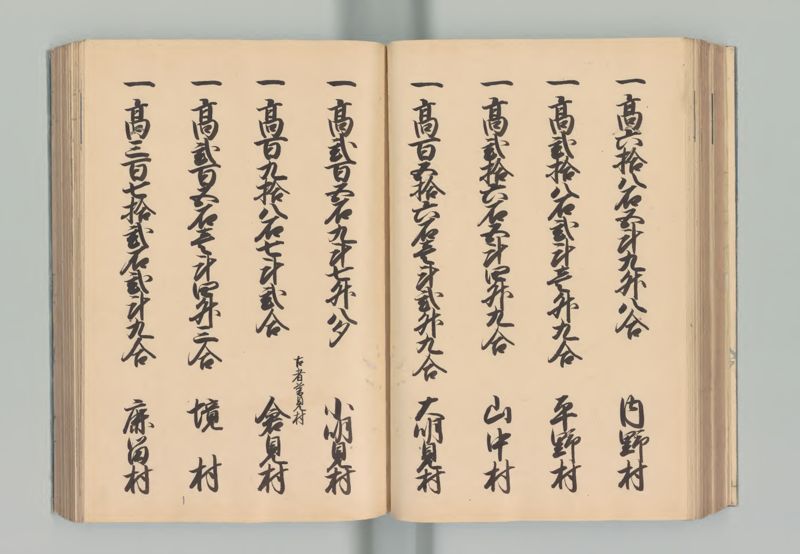 一 高六拾八石五斗九升八合 内野村
一 高弐拾八石弐斗壱升九合 平野村
一 高弐拾六石五斗四升九合 山中村
一 高百五拾六石壱斗弐升九合 大明見村
一 高弐百五石九斗七升八夕 小明見村
古者蔵見村
一 高百九拾八石七斗弐合 倉見村
一 高弐百五石壱斗四升三合 境村
一 高三百七拾弐石弐斗九合 鹿留村